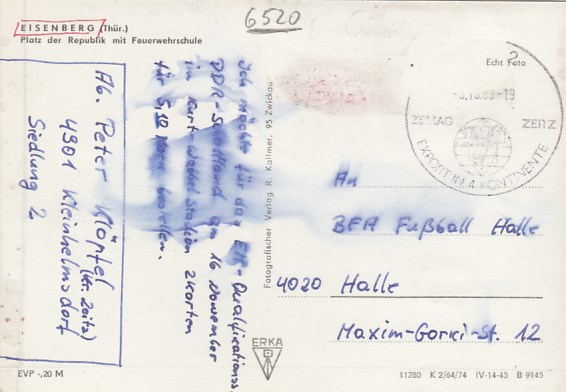 6520
EISENBERG (Thür.)
Platz der Republik mit Feuerwehrschule
Ab. Peter Klöpfel
(Kr. Zeitz)
4901 Kleinhelmsdorf
Siedlung 2
Ich möchte für das EM-Qualifikationss.
DDR-Schottland am 16 November
im Kurt Wabbel Stadion 2 Karten
für 5,10 Mark bestellen.
Fotografischer Verlag R. Kallmer, 95 Zwickau
Echt Foto
-5.10.83-19
ZEMAG
ZEITZ
EXPORT IN 4 KONTINENTE
An
BFA Fußball Halle
4020 Halle
Maxim-Gorki-St. 12
ERKA
EVP -,20 M
11280 K 2/64/74 IV-14-45 B 9145